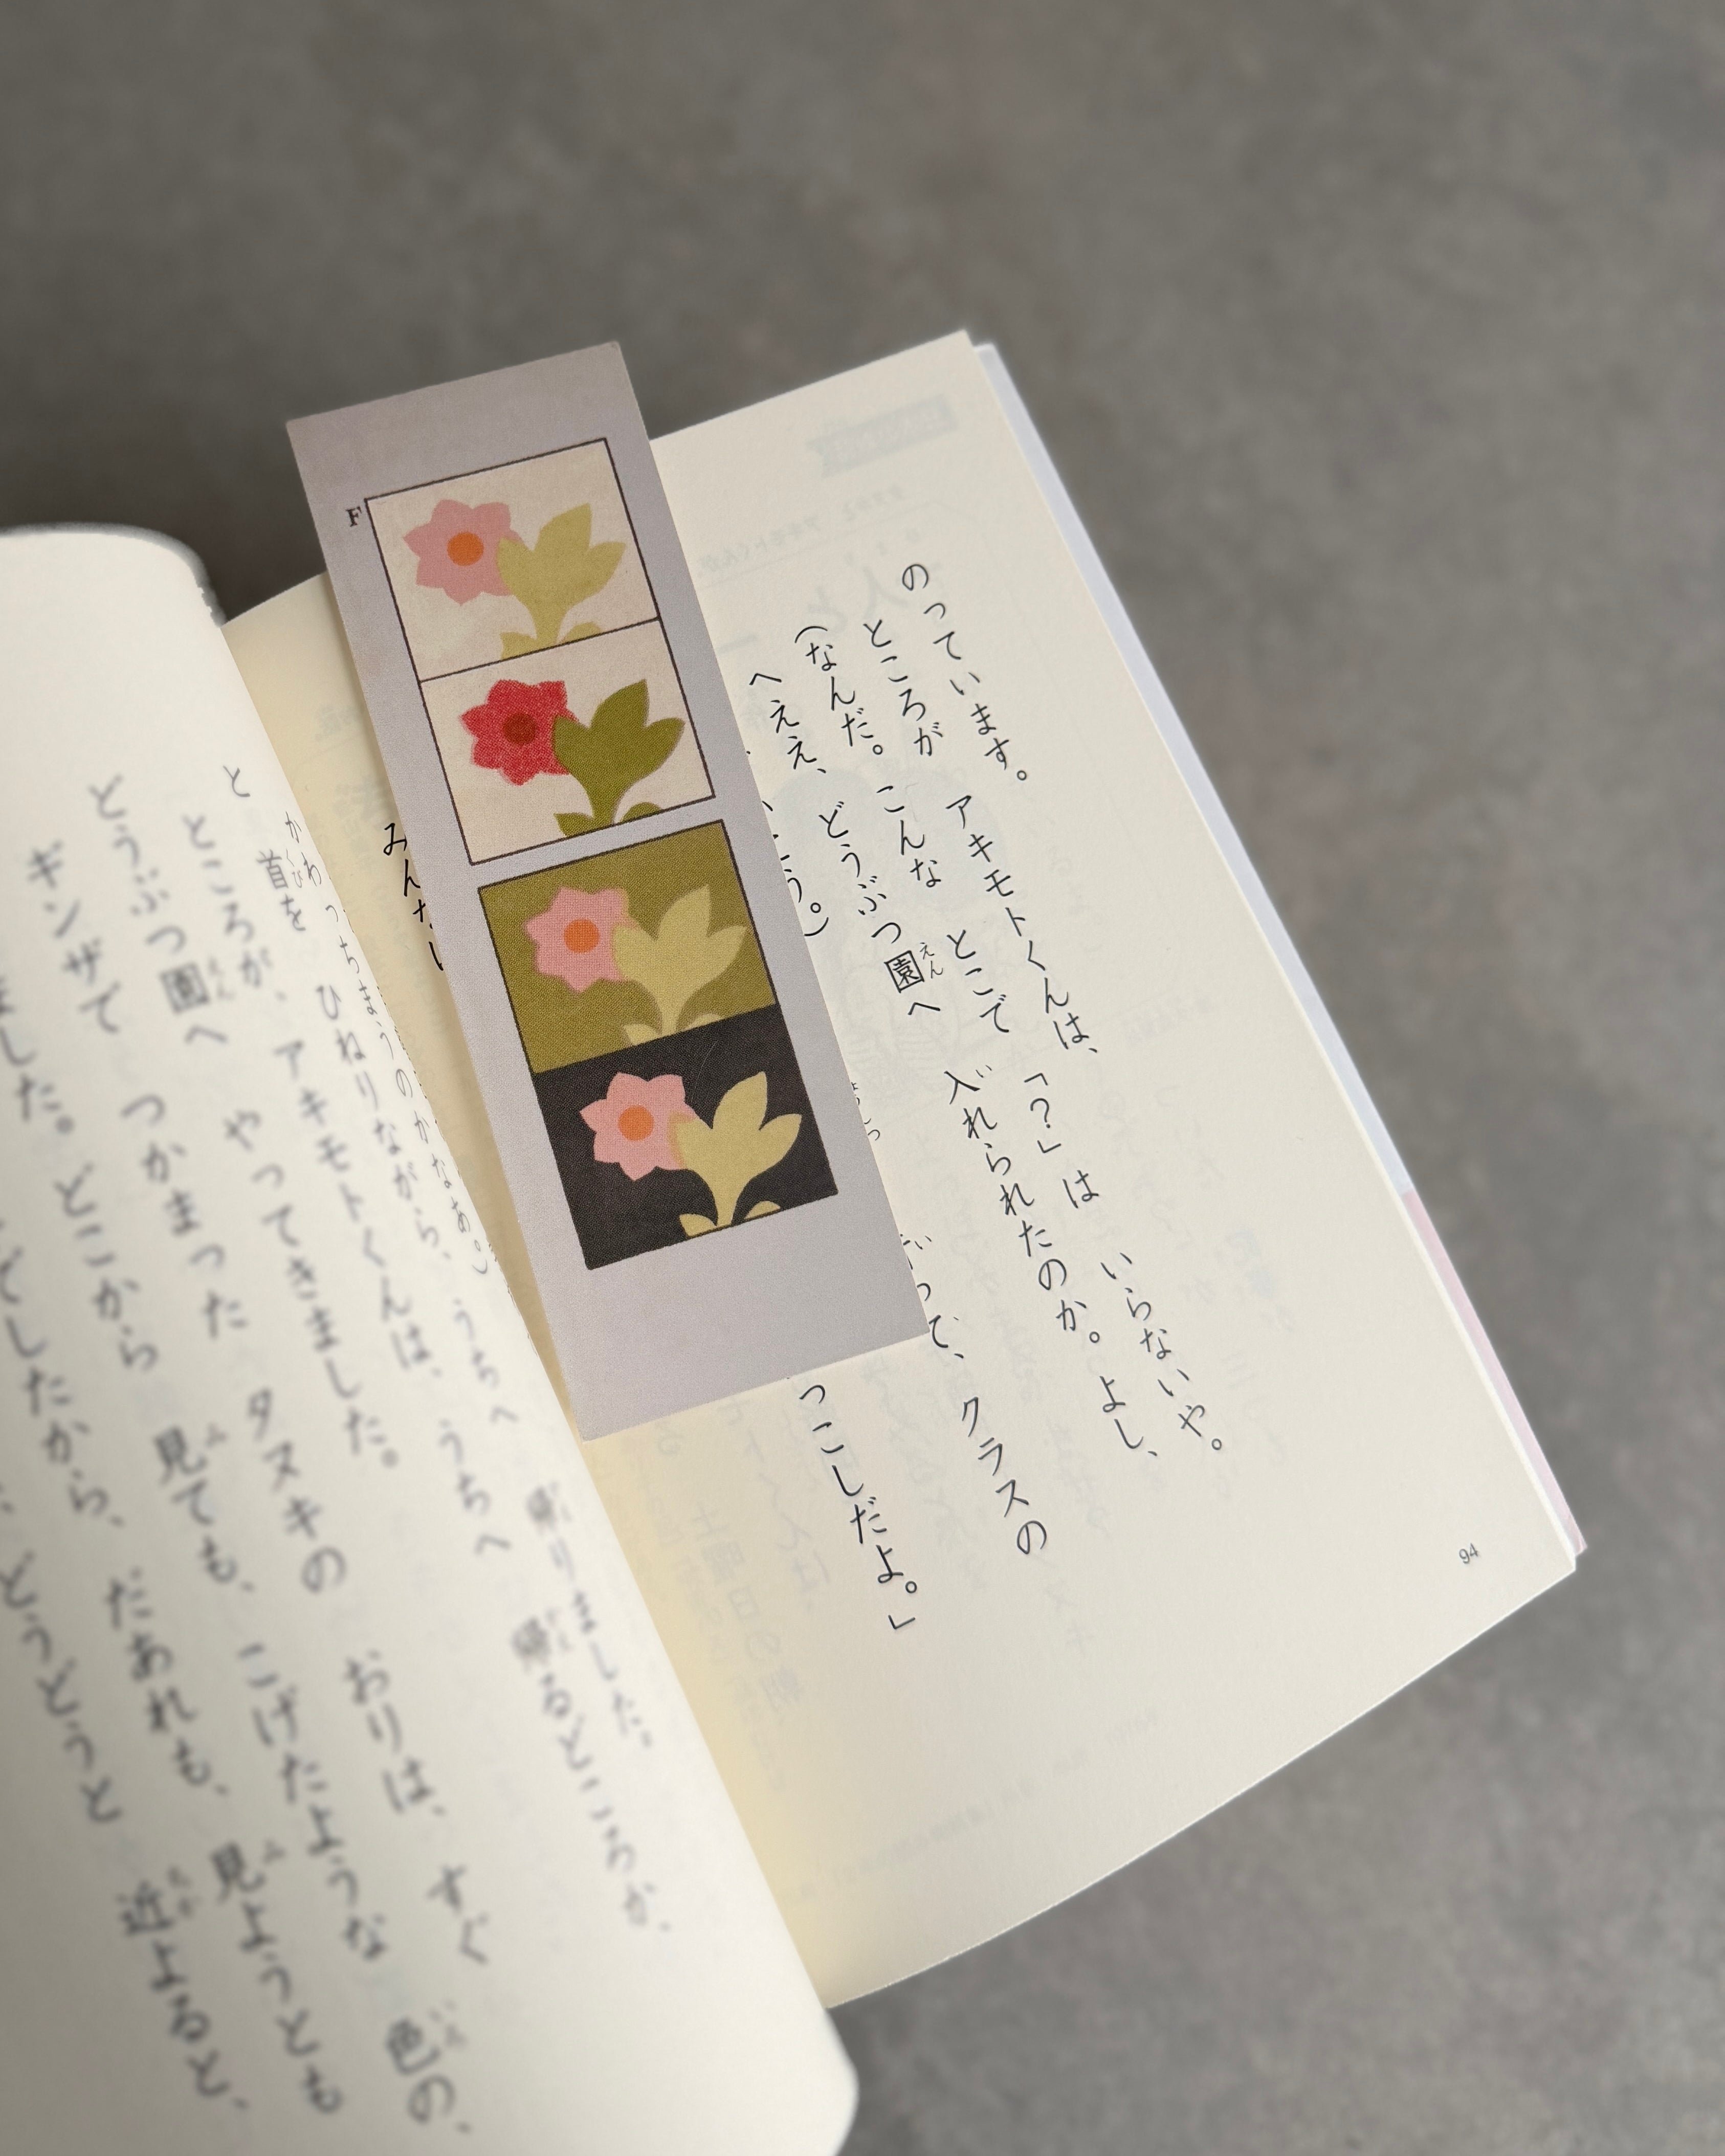 のっています。
ところが アキモトくんは、「？」は いらないや。
（なんだ。こんな とこで 入れられたのか。よし、
へええ、どうぶつ園へ
う。）
って、クラスの
みんなに
っこしだよ。」
94
かわっちまうのかなあ。）
と 首を ひねりながら、うちへ 帰りました。
ところが、アキモトくんは、うちへ 帰るどころか、
どうぶつ園へ やってきました。
ギンザで つかまった タヌキの おりは、すぐ
ました。どこから 見ても、こげたような 色の、
でしたから、だあれも、見ようとも
どうどうと 近よると、
F